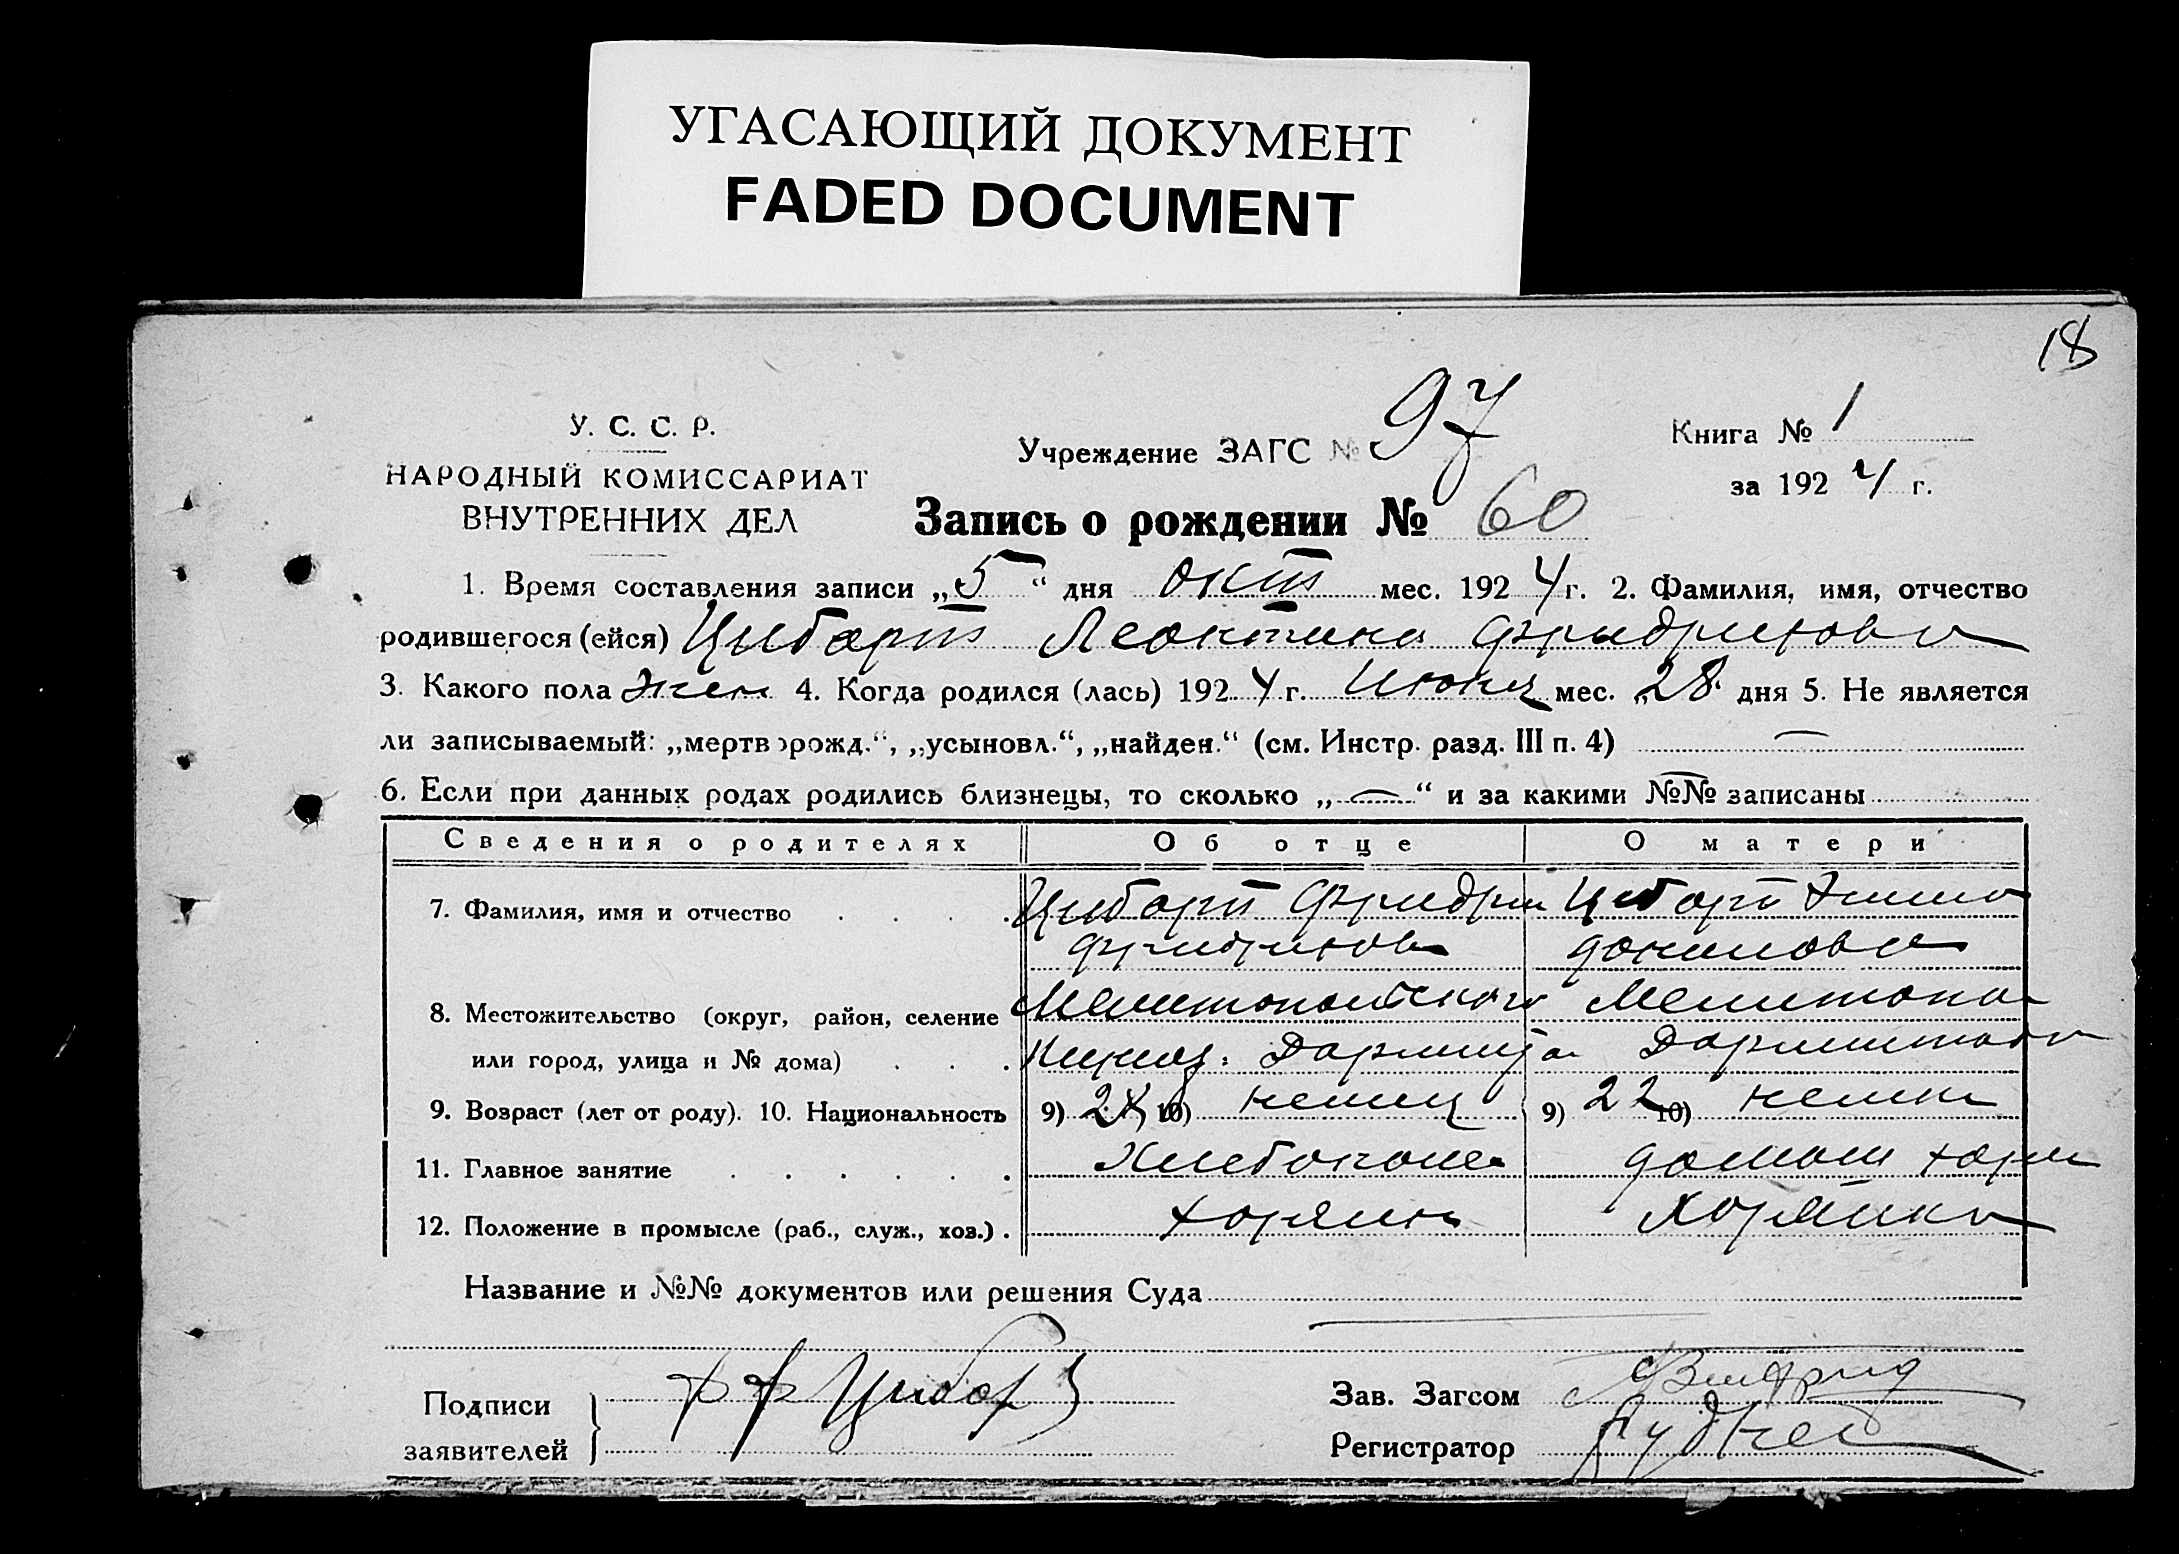 УГАСАЮЩИЙ ДОКУМЕНТ
FADED DOCUMENT
18
У. С. С. Р.
НАРОДНЫЙ КОМИССАРИАТ
ВНУТРЕННИХ ДЕЛ
Учреждение ЗАГС № 97
Книга № 1
за 1924 г.
Запись о рождении № 60
1. Время составления записи „5“ дня окт мес. 1924 г. 2. Фамилия, имя, отчество
родившегося (ейся) Цибарт Леонтина Фридриховна
3. Какого пола жен 4. Когда родился (лась) 1924 г. Июня мес. „28“ дня 5. Не является
ли записываемый: „мертворожд.“, „усыновл.“, „найден.“ (см. Инстр. разд. III п. 4) —
6. Если при данных родах родились близнецы, то сколько „—“ и за какими №№ записаны
Сведения о родителях Об отце О матери
7. Фамилия, имя и отчество Цибарт Фридрих Цибарт
Фридрихов
8. Местожительство (округ, район, селение Мелитопольского Мелитопол
или город, улица и № дома)
9. Возраст (лет от роду). 10. Национальность 9) 10) немец 9) 22 10) немка
11. Главное занятие Хлебопаше домаш
12. Положение в промысле (раб., служ., хоз.)
Название и №№ документов или решения Суда
Подписи
заявителей
Фр Цибарт
Зав. Загсом
Регистратор